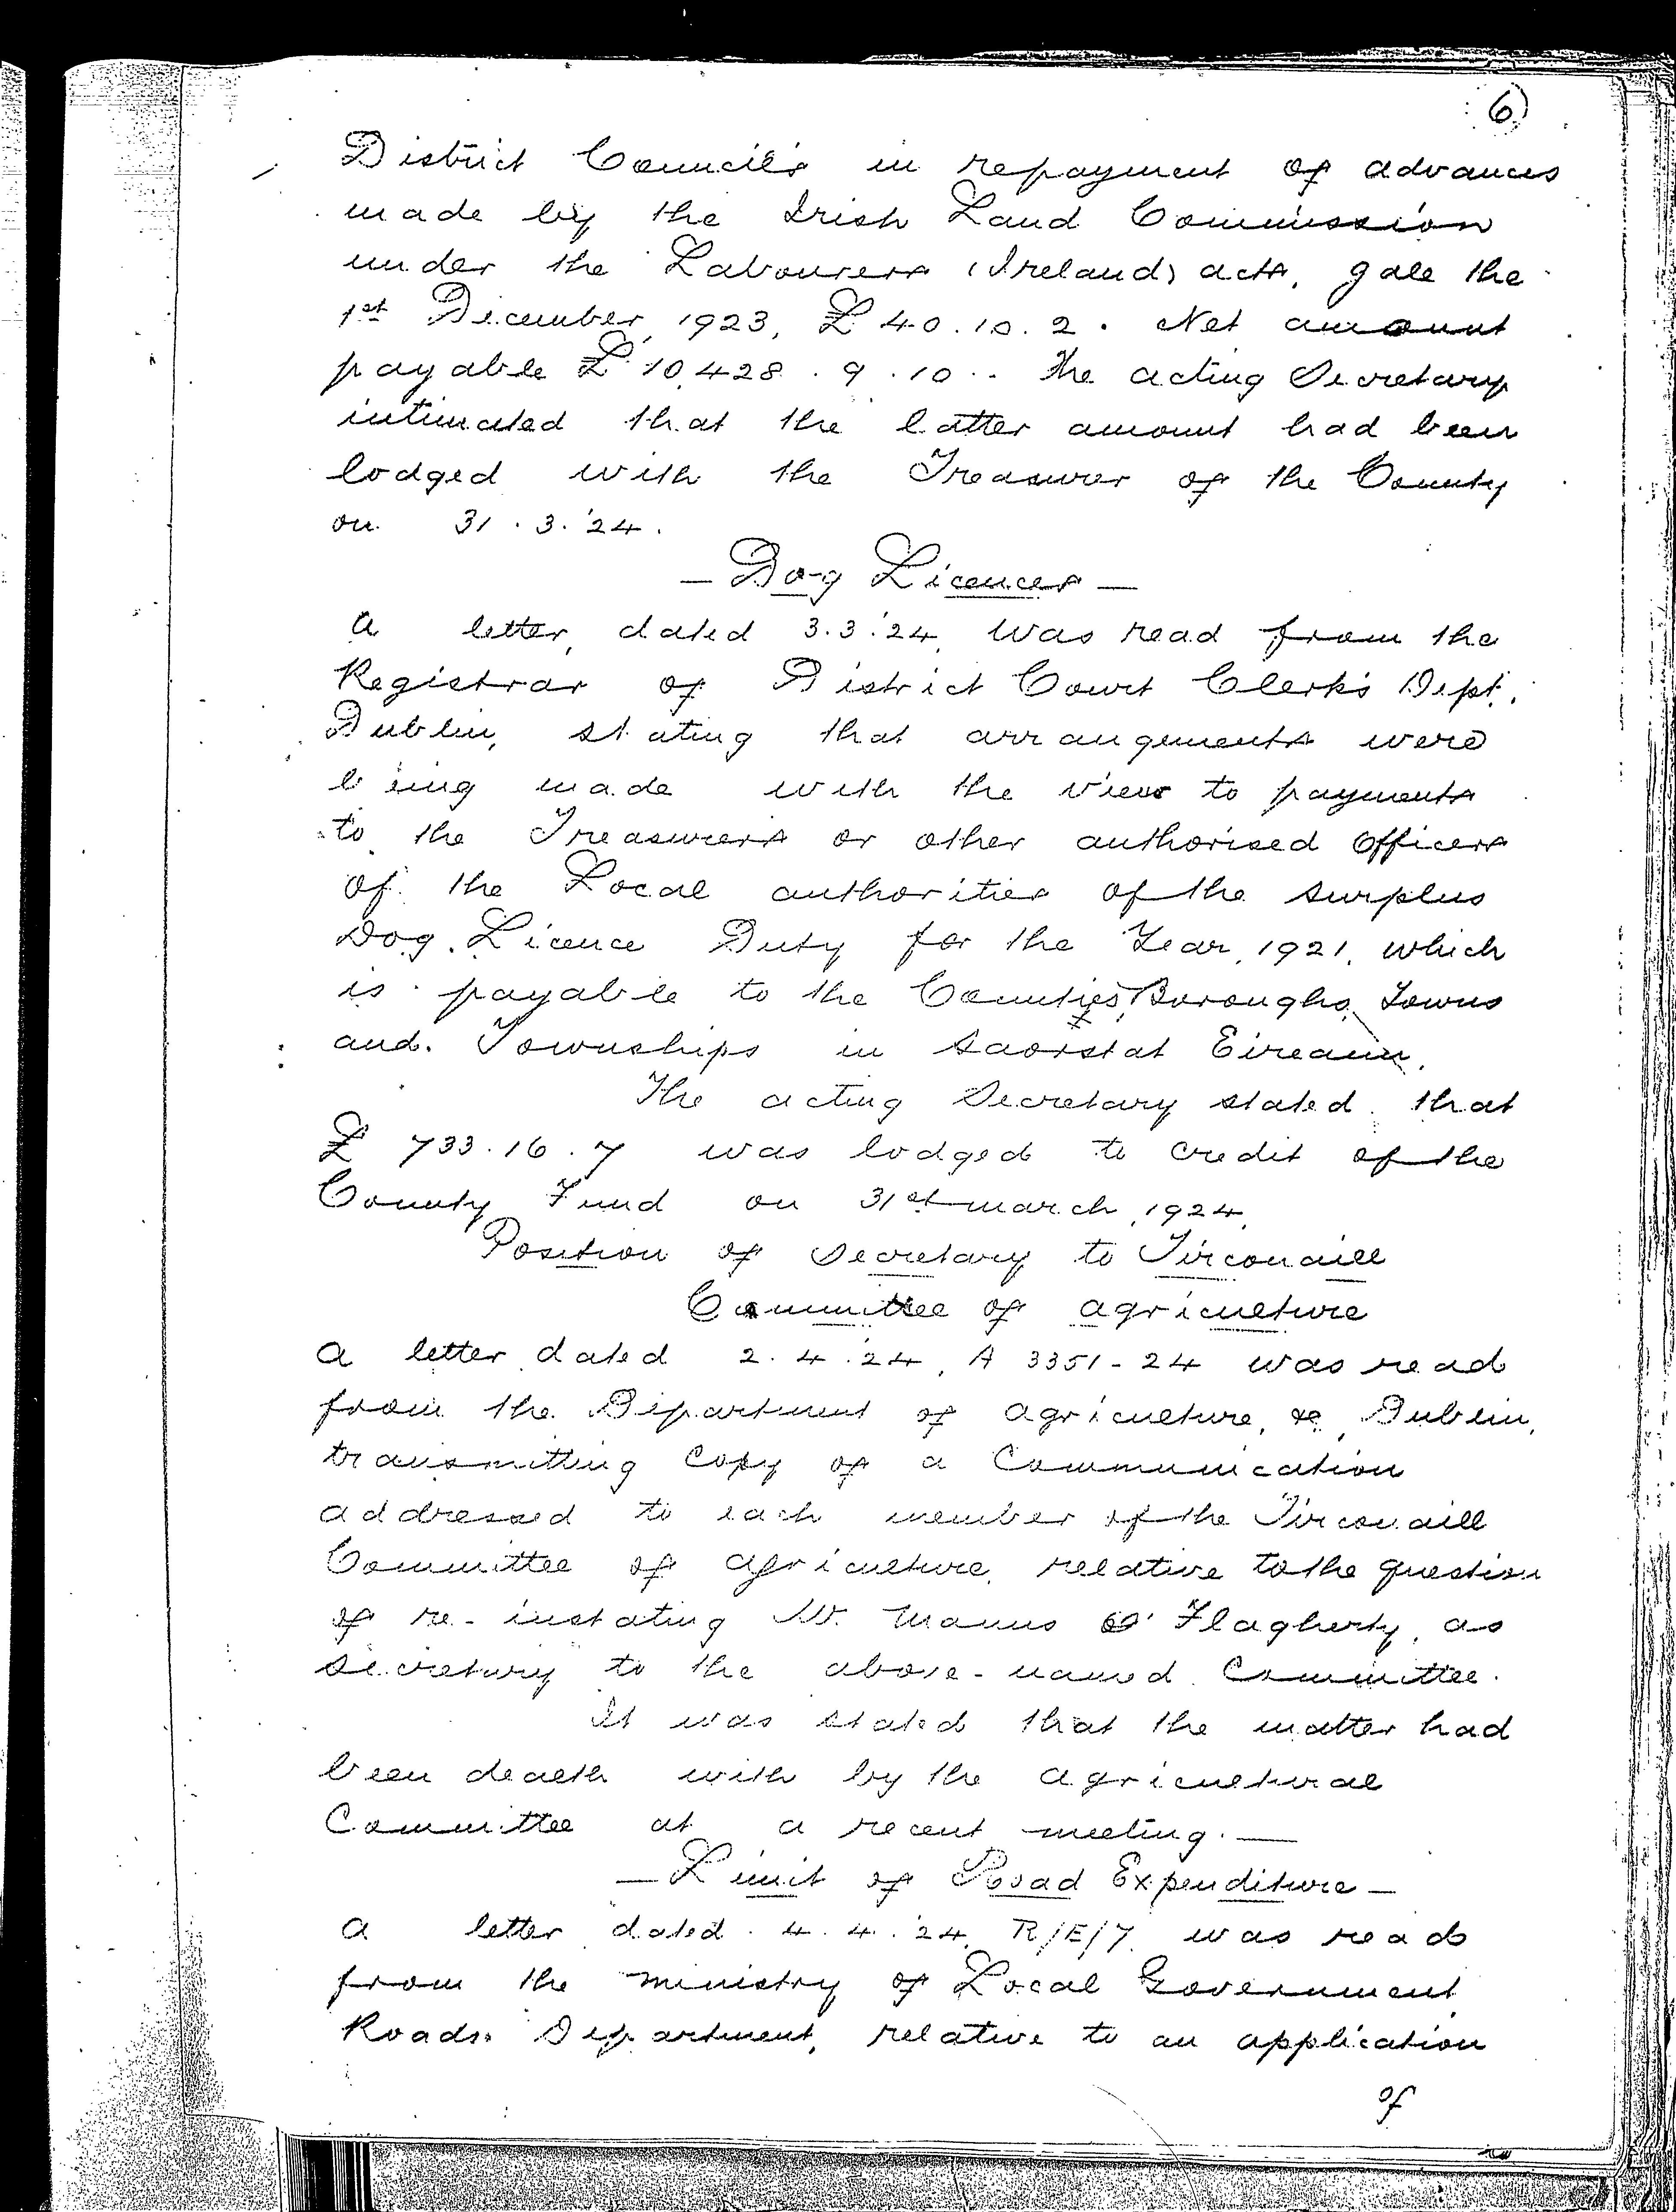 6)
District Councils in repayment of advances
made by the Irish Land Commission
under the Labourers (Ireland) acts, gale the
1st December, 1923, £40.10.2. Net amount
payable £10,428.9.10.. The acting Secretary
intimated that the latter amount had been
lodged with the Treasurer of the County
on 31.3.'24.
— Dog Licences —
A letter, dated 3.3.'24, was read from the
Registrar of District Court Clerk's Dept.,
Dublin, stating that arrangements were
being made with the view to payments
to the Treasurers or other authorised Officers
of the Local authorities of the surplus
Dog Licence Duty for the Year, 1921, which
is payable to the Counties, Boroughs, Towns
and Townships in Saorstat Eireann.
The acting Secretary stated that
£733.16.7 was lodged to credit of the
County Fund on 31st march, 1924.
Position of Secretary to Tirconaill
Committee of agriculture
A letter dated 2.4.'24, A 3351-24 was read
from the Department of agriculture, &c, Dublin,
transmitting copy of a Communication
addressed to each member of the Tirconaill
Committee of agriculture, relative to the question
of re-instating Mr. Manus O'Flagherty, as
secretary to the above-named Committee.
It was stated that the matter had
been dealth with by the agricultural
Committee at a recent meeting. —
— Limit of Road Expenditure —
A letter dated 4.4.'24, R/E/7. was read
from the ministry of Local Government
Roads Department, relative to an application
of